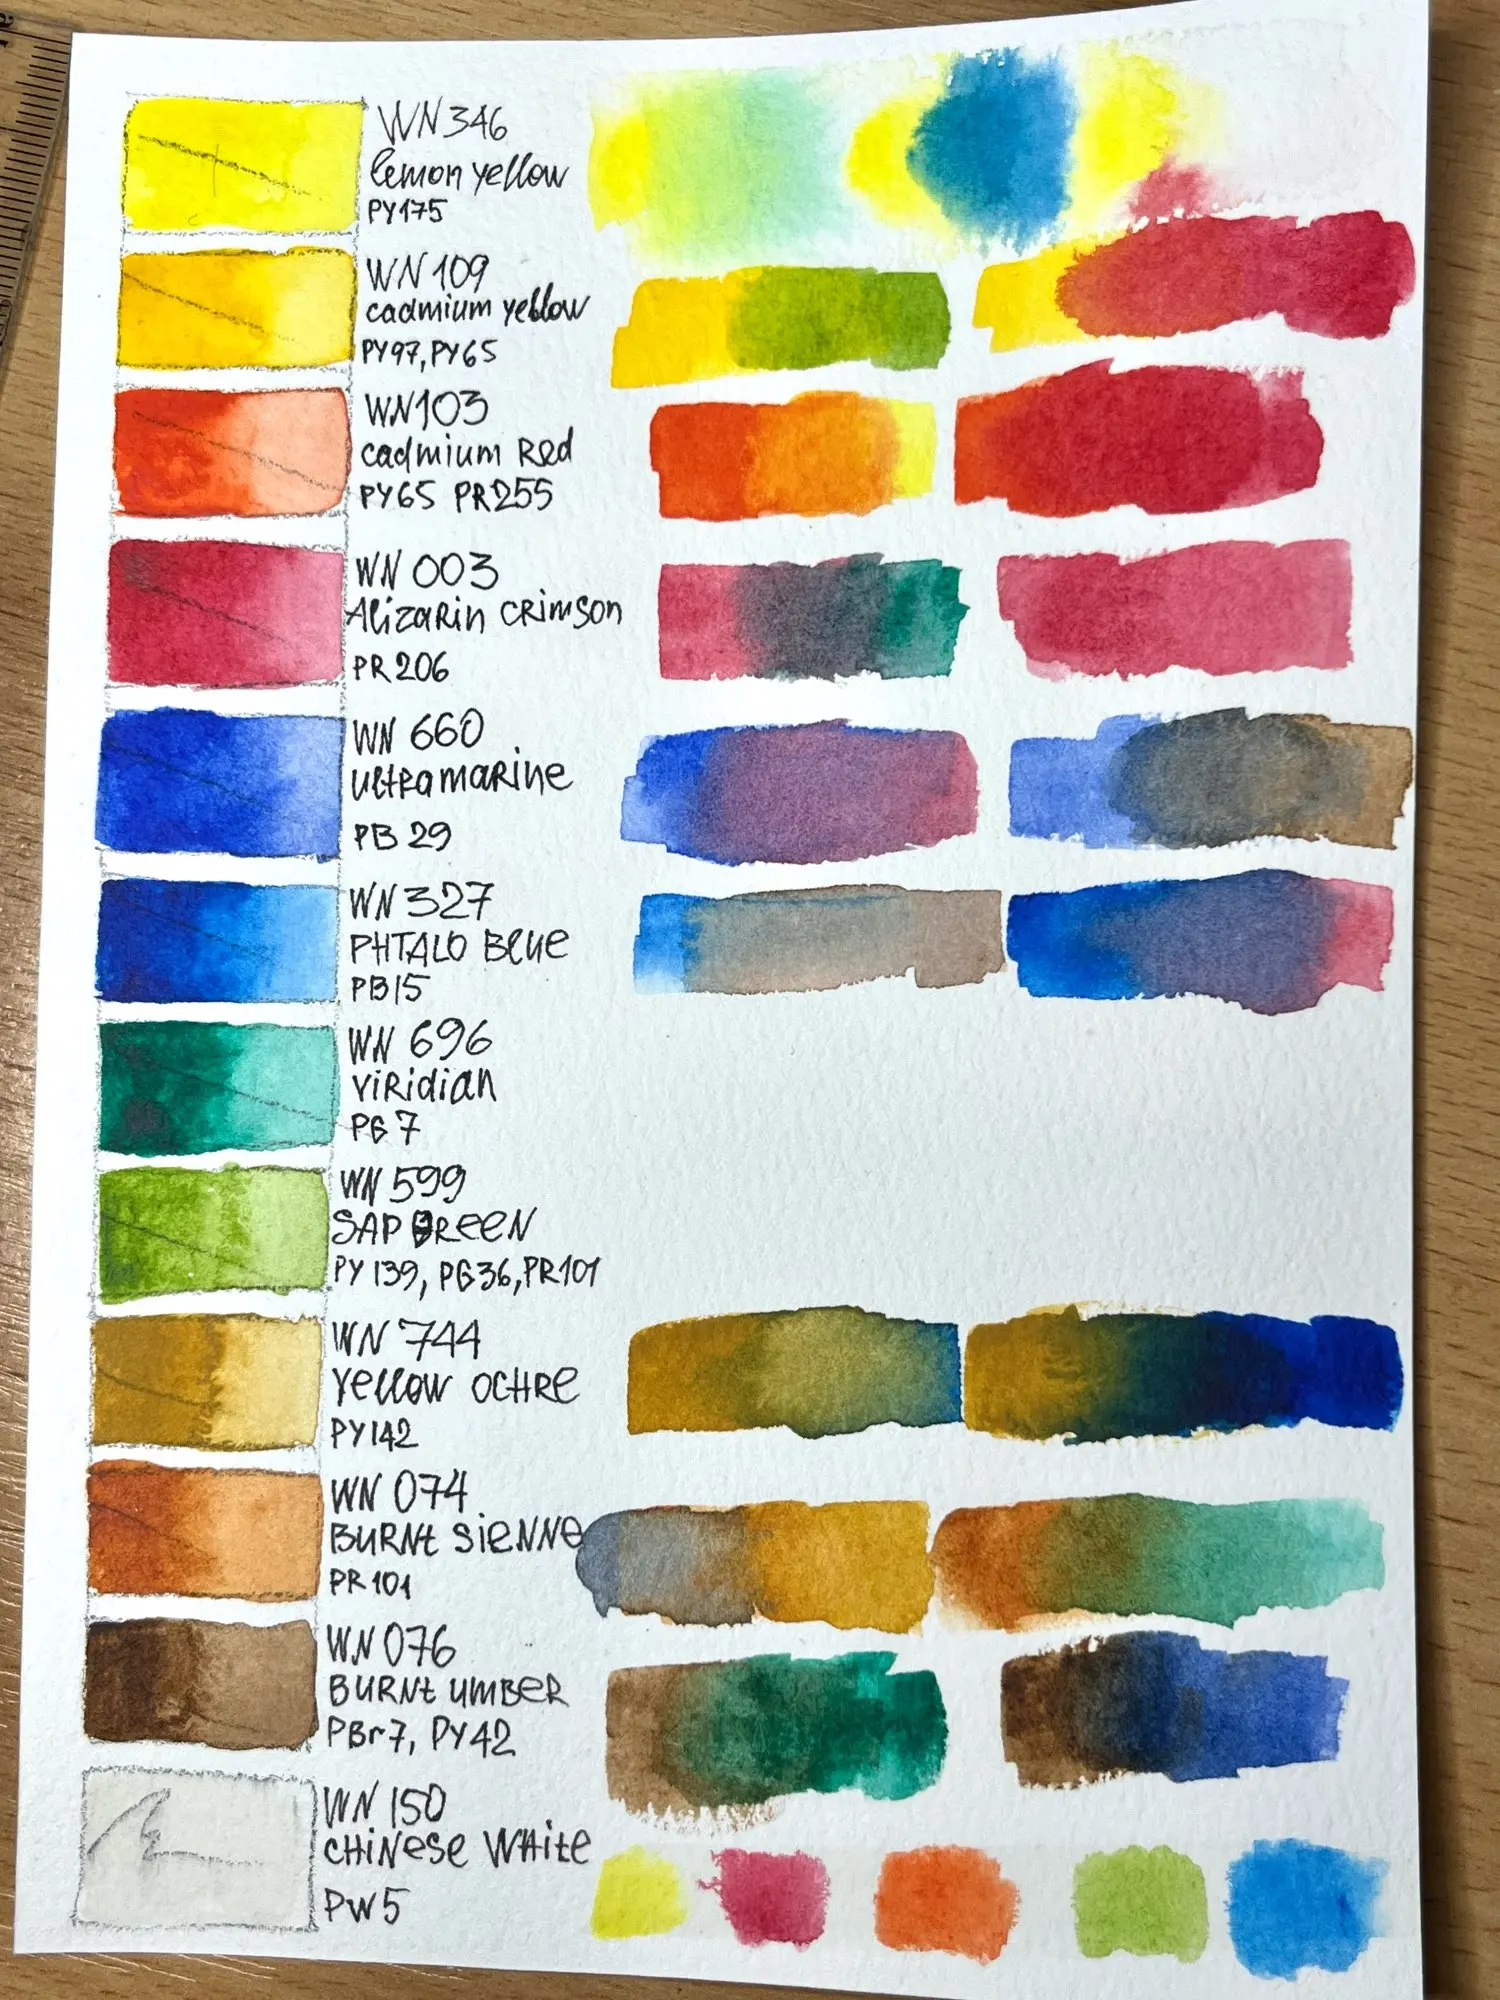 WN 346
lemon yellow
PY175
WN 109
cadmium yellow
PY97, PY65
WN 103
cadmium Red
PY65 PR255
WN 003
Alizarin crimson
PR 206
WN 660
ultramarine
PB 29
WN 327
PHTALO BLUE
PB15
WN 696
Viridian
PG7
WN 599
SAP GREEN
PY 139, PG36, PR101
WN 744
Yellow OCHRE
PY142
WN 074
BURNt SiENNe
PR 101
WN 076
BURNt UMBER
PBr7, PY42
WN 150
CHiNese WHite
PW5